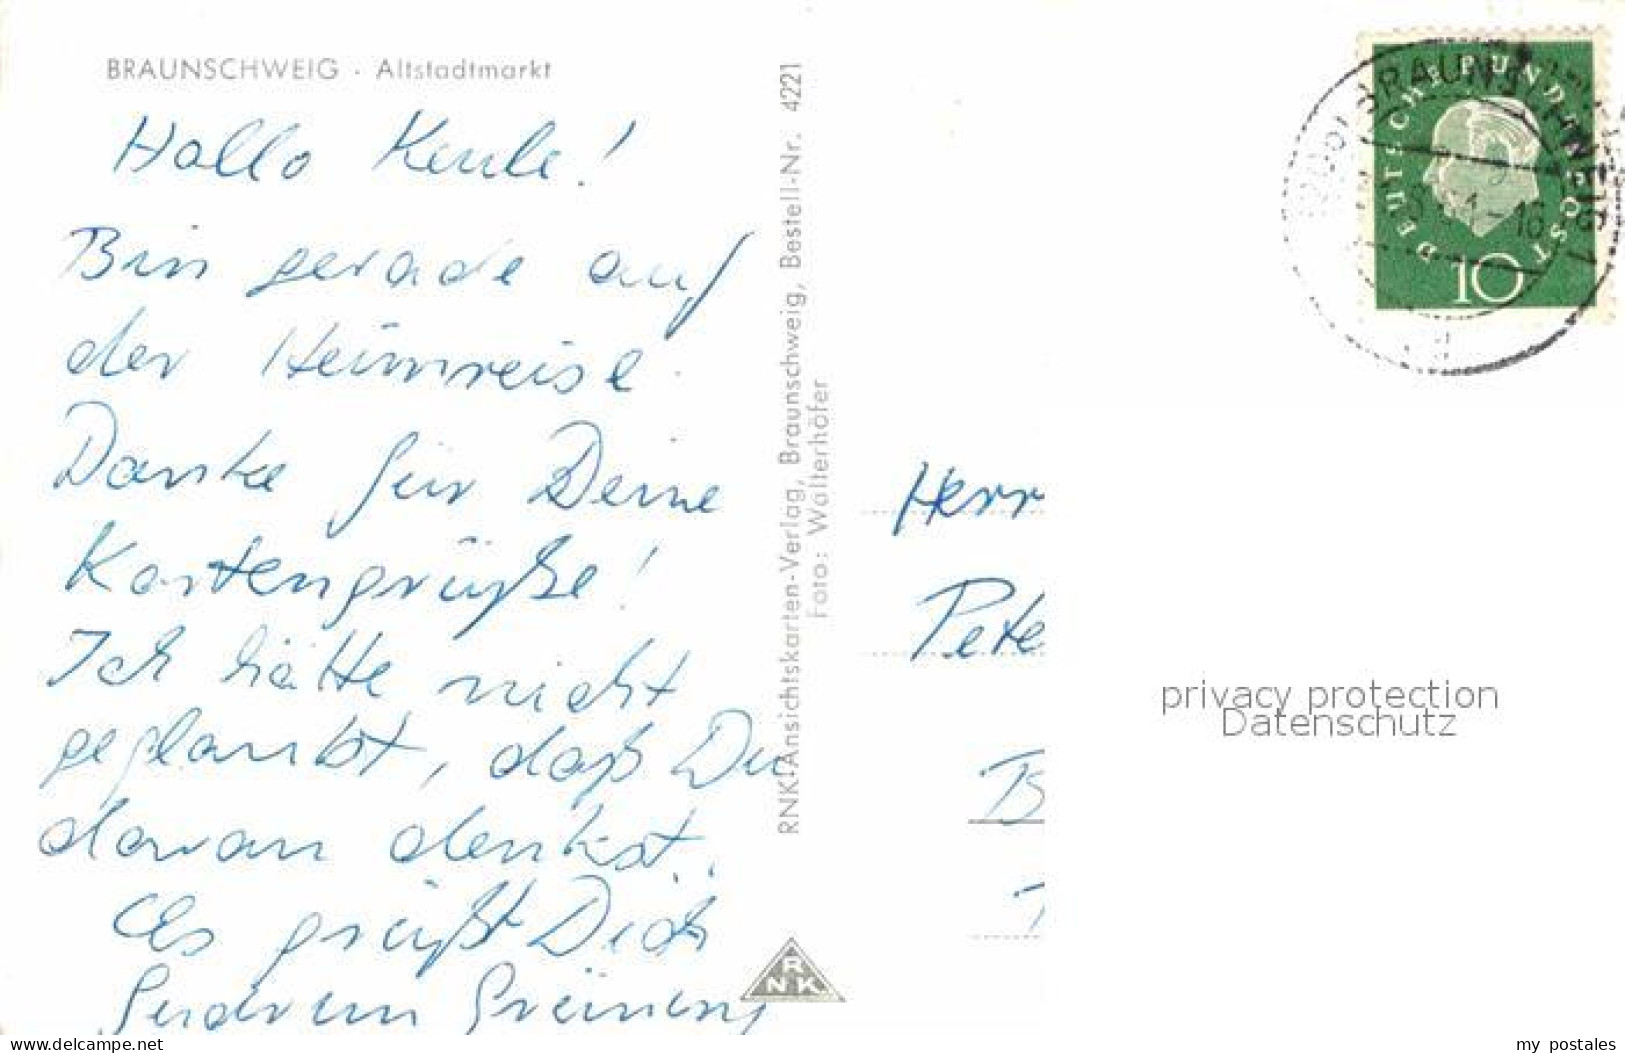 BRAUNSCHWEIG · Altstadtmarkt
Hallo Keule!
Bin gerade auf
der Heimreise.
Danke für Deine
Kartengrüße!
Ich hätte nicht
geglaubt, daß Du
daran denkst.
Es grüßt Dich
Gudrun
RNK-Ansichtskarten-Verlag, Braunschweig, Bestell-Nr. 4221
Foto: Walterhöfer
RNK
DEUTSCHE BUNDESPOST
10
BRAUNSCHWEIG
-16
Herr
Pete
B
privacy protection
Datenschutz
www.delcampe.net
my_postales